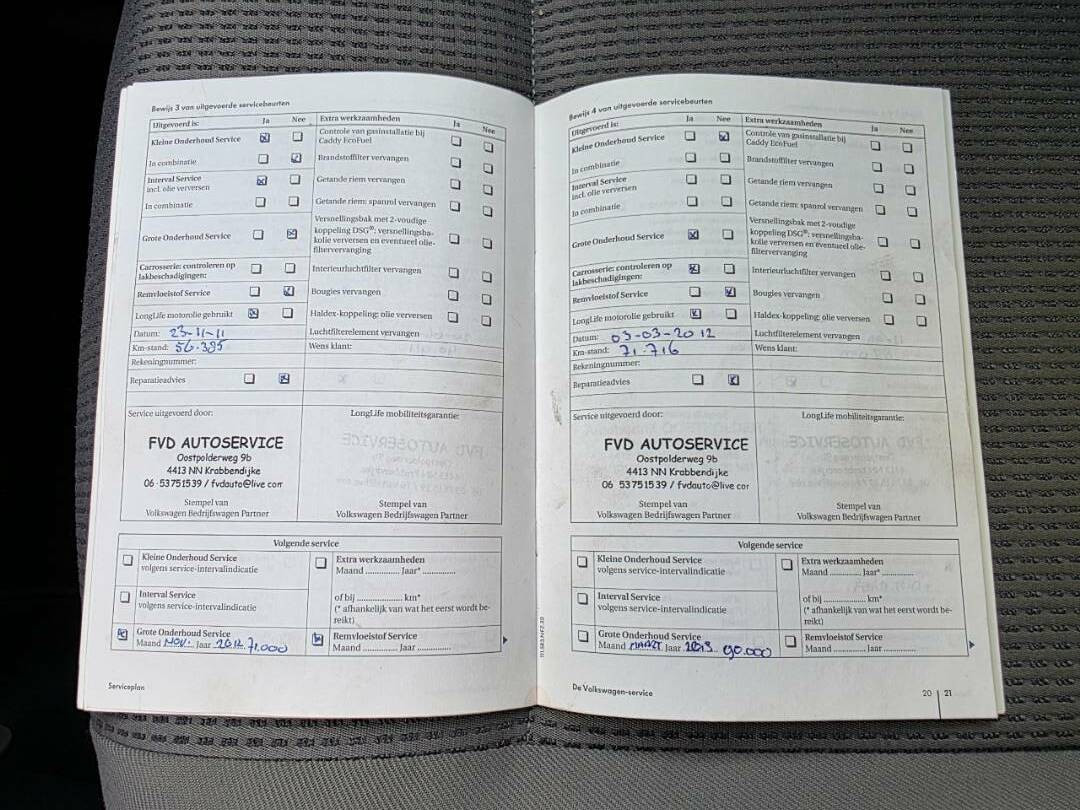 Bewijs 3 van uitgevoerde servicebeurten
Uitgevoerd is: Ja Nee Extra werkzaamheden Ja Nee
Kleine Onderhoud Service
Controle van gasinstallatie bij
Caddy EcoFuel
In combinatie
Brandstoffilter vervangen
Interval Service
incl. olie verversen
Getande riem vervangen
In combinatie
Getande riem: spanrol vervangen
Grote Onderhoud Service
Versnellingsbak met 2-voudige
koppeling DSG®: versnellingsba-
kolie verversen en eventueel olie-
filtervervanging
Carrosserie: controleren op
lakbeschadigingen:
Interieurluchtfilter vervangen
Remvloeistof Service
Bougies vervangen
LongLife motorolie gebruikt
Haldex-koppeling: olie verversen
Datum: 23-11-11
Luchtfilterelement vervangen
Km-stand: 56.385
Wens klant:
Rekeningnummer:
Reparatieadvies
Service uitgevoerd door:
LongLife mobiliteitsgarantie:
FVD AUTOSERVICE
Oostpolderweg 9b
4413 NN Krabbendijke
06-53751539 / fvdauto@live.com
Stempel van
Volkswagen Bedrijfswagen Partner
Stempel van
Volkswagen Bedrijfswagen Partner
Volgende service
Kleine Onderhoud Service
volgens service-intervalindicatie
Extra werkzaamheden
Maand .............. Jaar* ..............
Interval Service
volgens service-intervalindicatie
of bij .................... km*
(* afhankelijk van wat het eerst wordt be-
reikt)
Grote Onderhoud Service
Maand NOV. Jaar 2012 71.000
Remvloeistof Service
Maand ............ Jaar ............
Serviceplan
Bewijs 4 van uitgevoerde servicebeurten
Uitgevoerd is: Ja Nee Extra werkzaamheden Ja Nee
Kleine Onderhoud Service
Controle van gasinstallatie bij
Caddy EcoFuel
In combinatie
Brandstoffilter vervangen
Interval Service
incl. olie verversen
Getande riem vervangen
In combinatie
Getande riem: spanrol vervangen
Grote Onderhoud Service
Versnellingsbak met 2-voudige
koppeling DSG®: versnellingsba-
kolie verversen en eventueel olie-
filtervervanging
Carrosserie: controleren op
lakbeschadigingen:
Interieurluchtfilter vervangen
Remvloeistof Service
Bougies vervangen
LongLife motorolie gebruikt
Haldex-koppeling: olie verversen
Datum: 03-03-2012
Luchtfilterelement vervangen
Km-stand: 71.716
Wens klant:
Rekeningnummer:
Reparatieadvies
Service uitgevoerd door:
LongLife mobiliteitsgarantie:
FVD AUTOSERVICE
Oostpolderweg 9b
4413 NN Krabbendijke
06 53751539 / fvdauto@live.com
Stempel van
Volkswagen Bedrijfswagen Partner
Stempel van
Volkswagen Bedrijfswagen Partner
Volgende service
Kleine Onderhoud Service
volgens service-intervalindicatie
Extra werkzaamheden
Maand .............. Jaar* ..............
Interval Service
volgens service-intervalindicatie
of bij .................... km*
(* afhankelijk van wat het eerst wordt be-
reikt)
Grote Onderhoud Service
Maand MAART Jaar 2013 90.000
Remvloeistof Service
Maand ............ Jaar ............
De Volkswagen-service
20 21